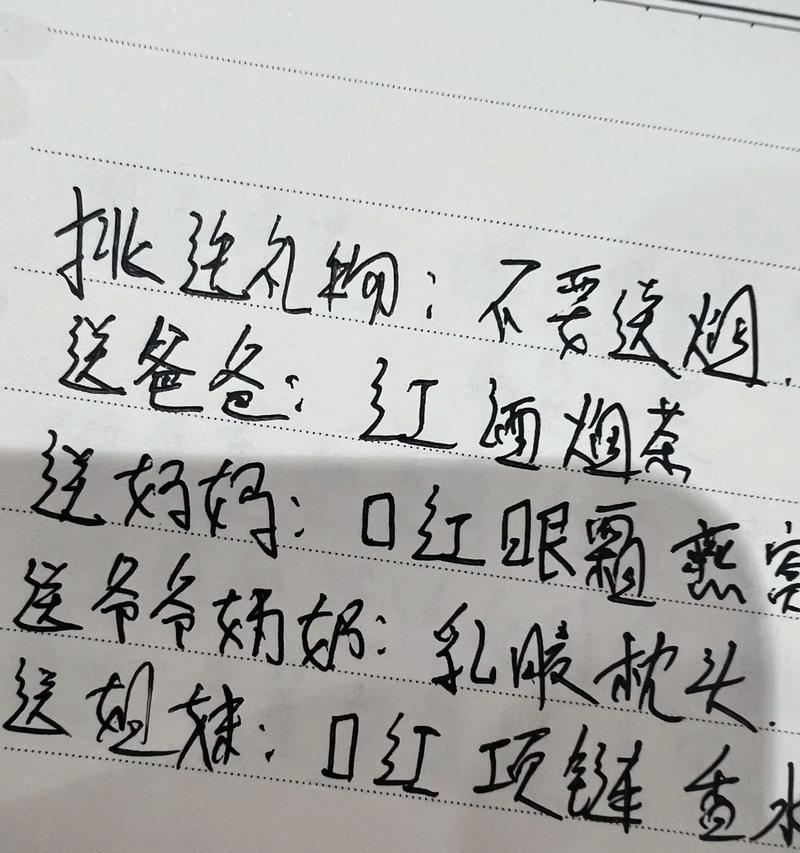 挑选礼物：不要送烟.
送爸爸：红酒烟茶
送妈妈：口红眼霜燕窝
送爷爷奶奶：乳胶枕头.
送姐妹：口红 项链 香水